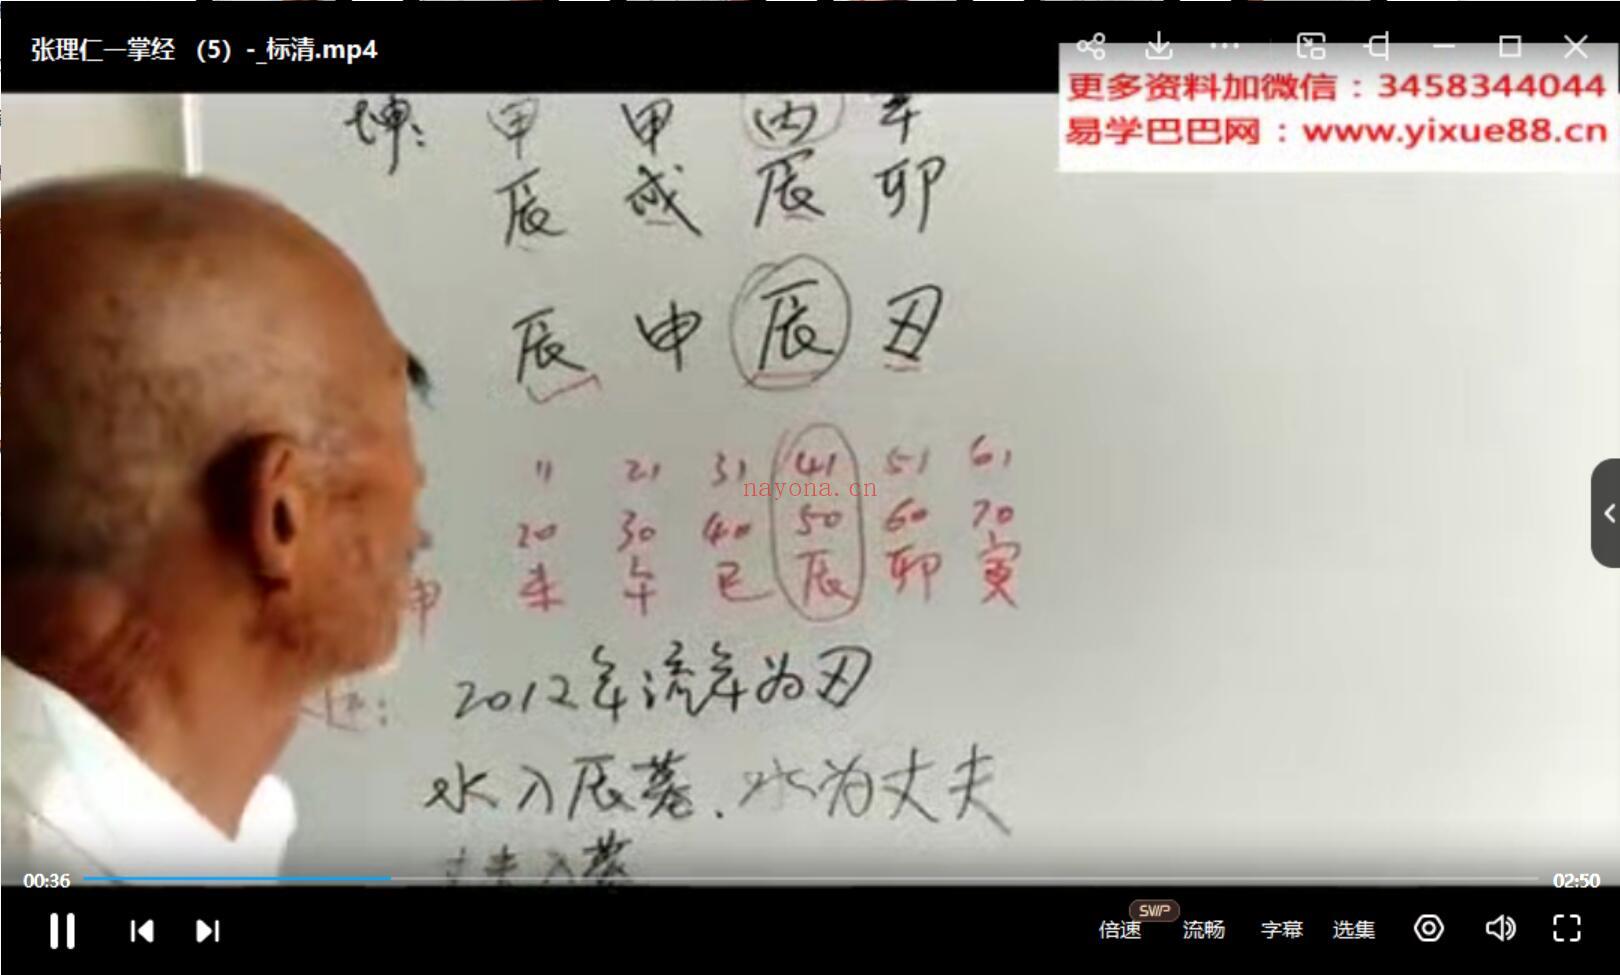 张理仁一掌经 （5）-_标清.mp4
更多资料加微信：3458344044
易学巴巴网：www.yixue88.cn
坤： 甲 甲 丙 辛
辰 戌 辰 卯
辰 申 辰 丑
11 21 31 41 51 61
nayona.cn
20 30 40 50 60 70
申 未 午 巳 辰 卯 寅
2012年流年为丑
水入辰墓．水为丈夫
丈夫入墓
00:36
02:50
SVIP
倍速 流畅 字幕 选集